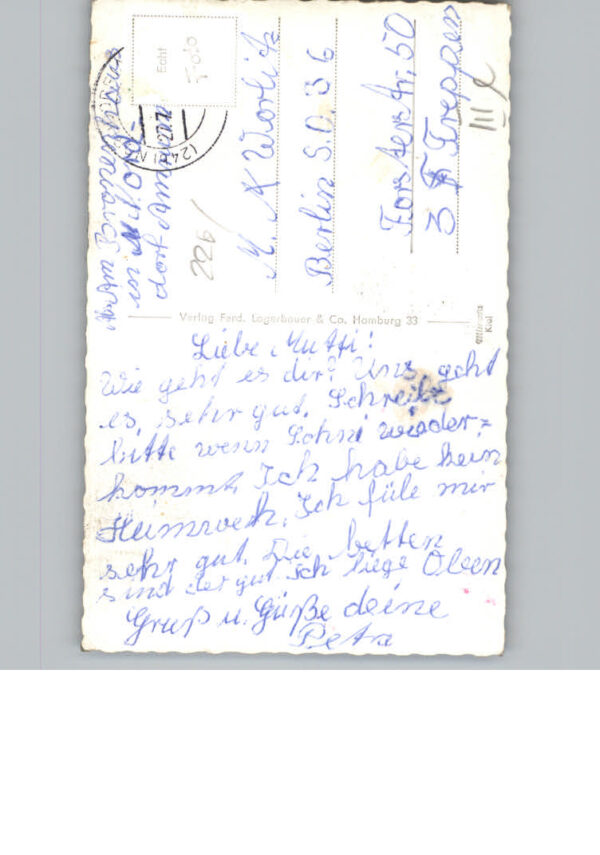 Echt
Foto
M. K Worlitz
Berlin S.O. 36
Forsterstr. 50
3 Treppen
III
226/
Verlag Ferd. Lagerbauer & Co. Hamburg 33
Kiel
Liebe Mutti!
Wie geht es dir? Uns geht
es sehr gut. Schreibe
bitte wenn wieder=
kommt. Ich habe kein
Heimweh. Ich füle mir
sehr gut. Die betten
sind ser gut. Ich liege Oben
Gruß u. Güße deine
Petra